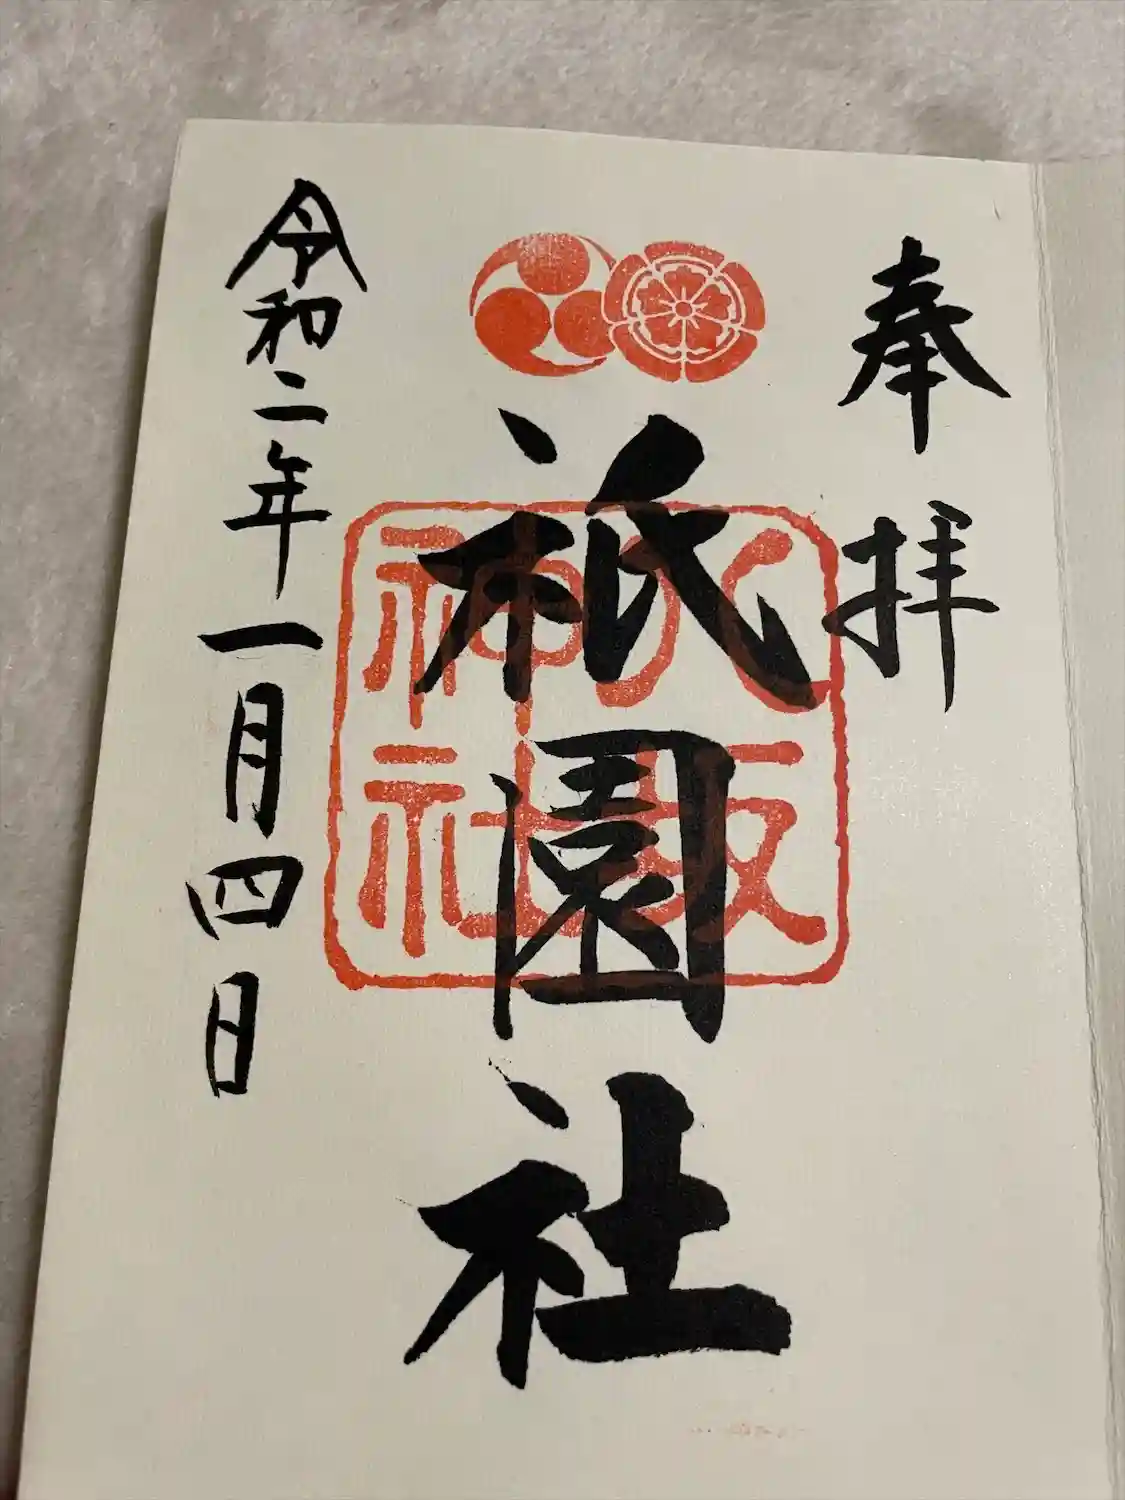 奉拝
祇園社
八坂
神社
令和二年一月四日